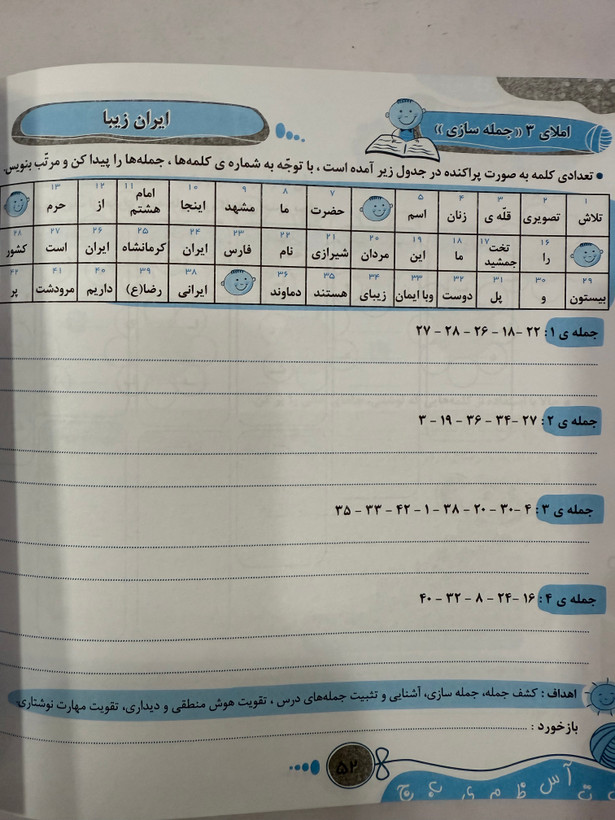 ایران زیبا
املای ۳ «جمله سازی»
• تعدادی کلمه به صورت پراکنده در جدول زیر آمده است ، با توجّه به شماره ی کلمه‌ها ، جمله‌ها را پیدا کن و مرتّب بنویس.
۱ ۲ ۳ ۴ ۵ ۷ ۸ ۹ ۱۰ ۱۱ ۱۲ ۱۳
تلاش تصویری قلّه ی زنان اسم حضرت ما مشهد اینجا امام هشتم از حرم
۱۶ ۱۷ ۱۸ ۱۹ ۲۰ ۲۱ ۲۲ ۲۳ ۲۴ ۲۵ ۲۶ ۲۷ ۲۸
را تخت جمشید ما این مردان شیرازی نام فارس ایران کرمانشاه ایران است کشور
۲۹ ۳۰ ۳۱ ۳۲ ۳۳ ۳۴ ۳۵ ۳۶ ۳۸ ۳۹ ۴۰ ۴۱ ۴۲
بیستون و پل دوست وبا ایمان زیبای هستند دماوند ایرانی رضا(ع) داریم مرودشت پر
جمله ی ۱: ۲۲ - ۱۸ - ۲۶ - ۲۸ - ۲۷
جمله ی ۲: ۲۷ - ۳۴ - ۳۶ - ۱۹ - ۳
جمله ی ۳: ۴ - ۳۰ - ۲۰ - ۳۸ - ۱ - ۴۲ - ۳۳ - ۳۵
جمله ی ۴: ۱۶ - ۲۴ - ۸ - ۳۲ - ۴۰
اهداف : کشف جمله، جمله سازی، آشنایی و تثبیت جمله‌های درس ، تقویت هوش منطقی و دیداری، تقویت مهارت نوشتاری.
بازخورد :
۵۲